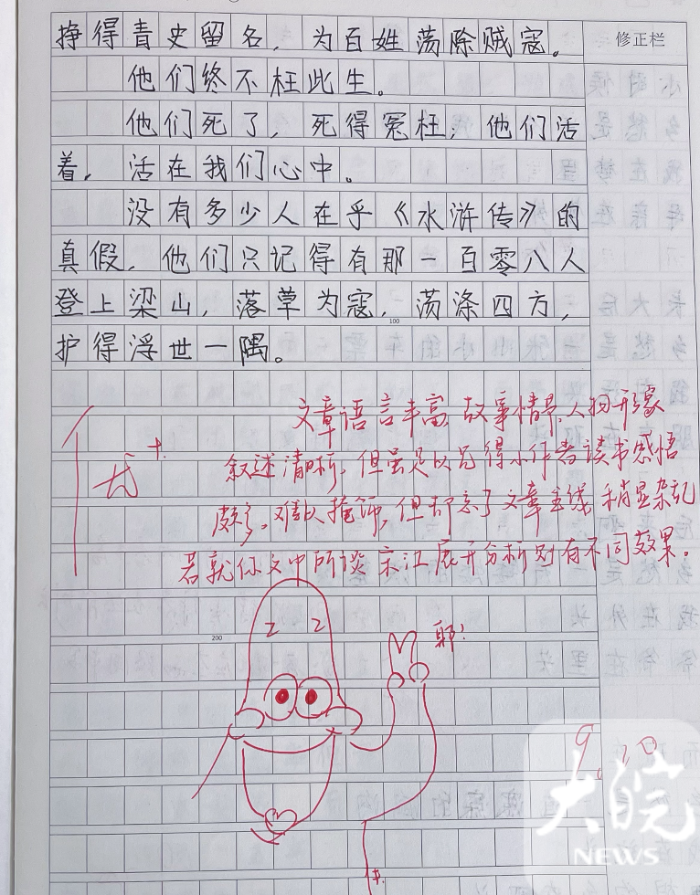 挣得青史留名，为百姓荡除贼寇。
修正栏
他们终不枉此生。
他们死了，死得冤枉，他们活
着，活在我们心中。
没有多少人在乎《水浒传》的
真假，他们只记得有那一百零八人
登上梁山，落草为寇，荡涤四方，
100
护得浮世一隅。
文章语言丰富，故事情节，人物形象
叙述清晰，但虽足以见得小作者读书感悟
颇多，难以掩饰，但却忘了文章主线，稍显杂乱
若就你文中所谈宋江展开分析则有不同效果。
200
耶！
9.10
大皖
NEWS